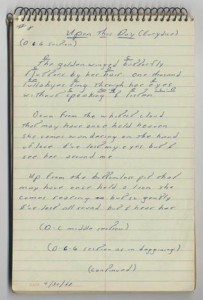 Upon this Day (Surgeion)
(D-G section)
The golden winged butterfly
flutters by her hair, one thousand
lullabyes sing through her eyes
without speaking to listen.
Down from the whitest cloud
that may have once held heaven
she comes wandering on the hand
of love I've lost my eyes but I
see her around me
Up from the bottomless pit that
may have once held a lion she
comes roaring so gently
I've lost all but I hear her.
(D-G middle section)
(D-G section as in beginning)
(continued)